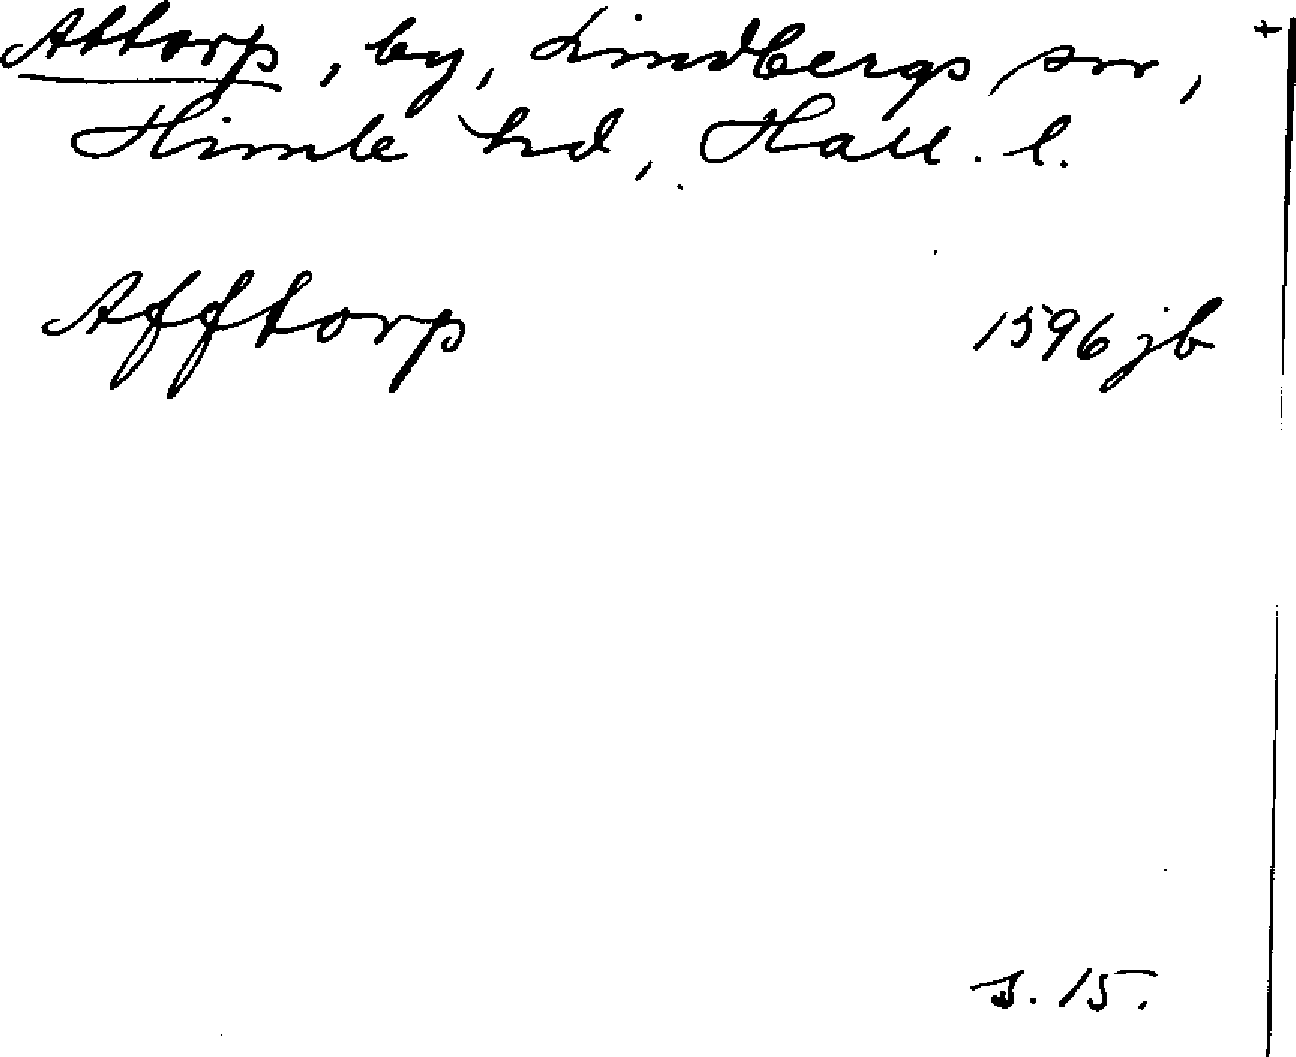 Attorp, by, Lindbergs snr,
Himle hd, Hall. l.
Afftorp 1596 jb
s. 15.